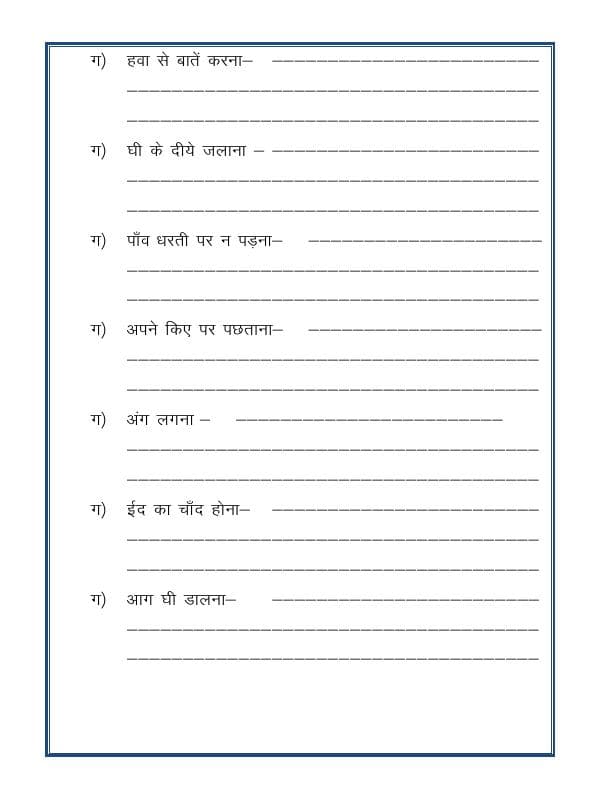 ग) हवा से बातें करना–
ग) घी के दीये जलाना –
ग) पाँव धरती पर न पड़ना–
ग) अपने किए पर पछताना–
ग) अंग लगना –
ग) ईद का चाँद होना–
ग) आग घी डालना–